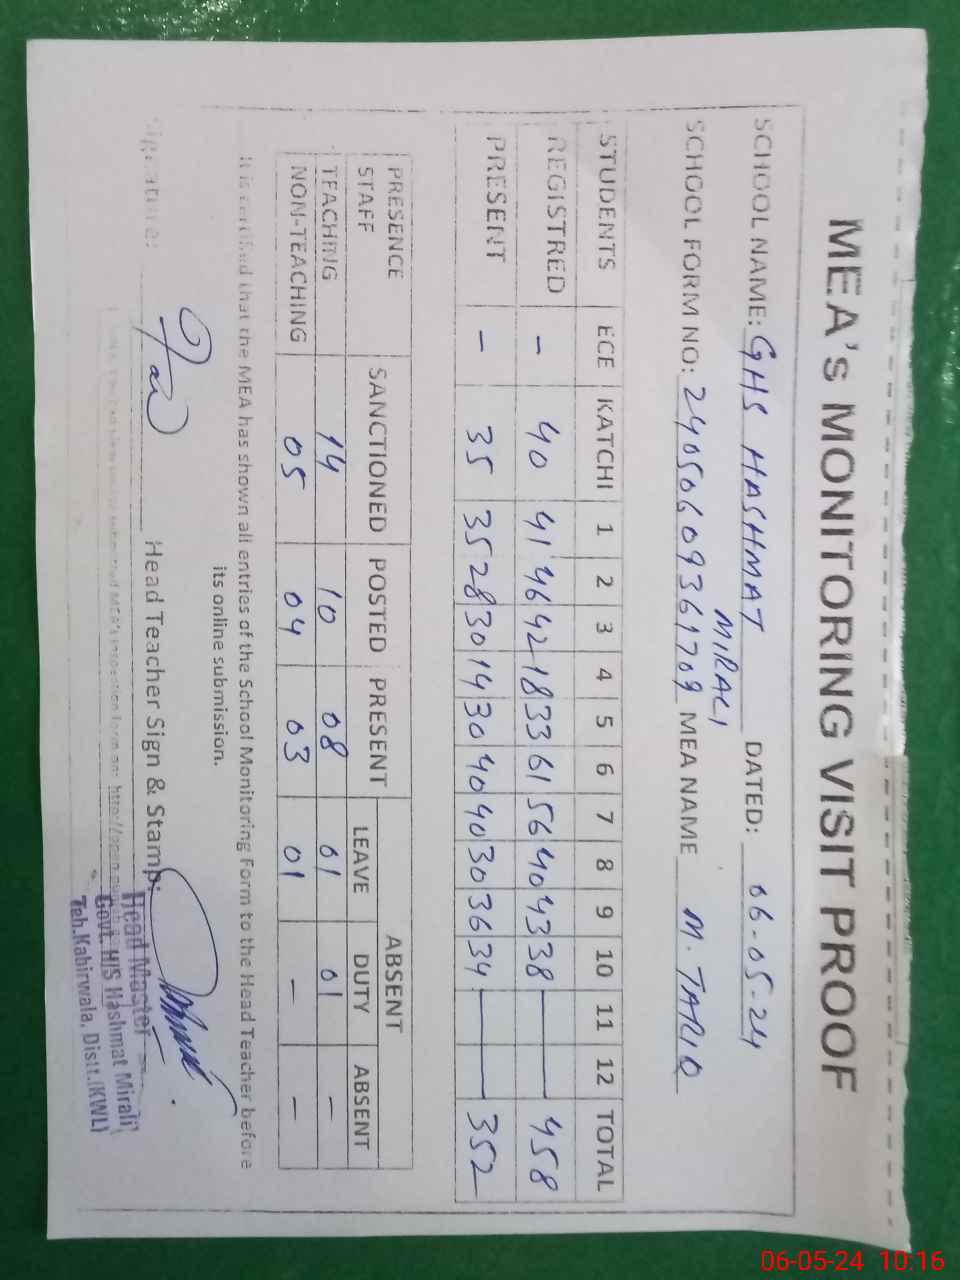 MEA'S MONITORING VISIT PROOF
SCHOOL NAME: GHS HASHMAT MIRALI DATED: 06-05-24
SCHOOL FORM NO: 24050609361709 MEA NAME M. TARIQ
STUDENTS ECE KATCHI 1 2 3 4 5 6 7 8 9 10 11 12 TOTAL
REGISTRED – 40 41 46 42 18 33 61 56 40 43 38 — — 458
PRESENT – 35 35 28 30 14 30 40 40 30 36 34 — — 352
PRESENCE STAFF SANCTIONED POSTED PRESENT ABSENT
LEAVE DUTY ABSENT
TEACHING 14 10 08 01 01 –
NON-TEACHING 05 04 03 01 – –
It is certified that the MEA has shown all entries of the School Monitoring Form to the Head Teacher before
its online submission.
Signature: Head Teacher Sign & Stamp:
Head Master
Govt. H/S Hashmat Mirali
Teh. Kabirwala, Distt. (KWL)
06-05-24 10:16